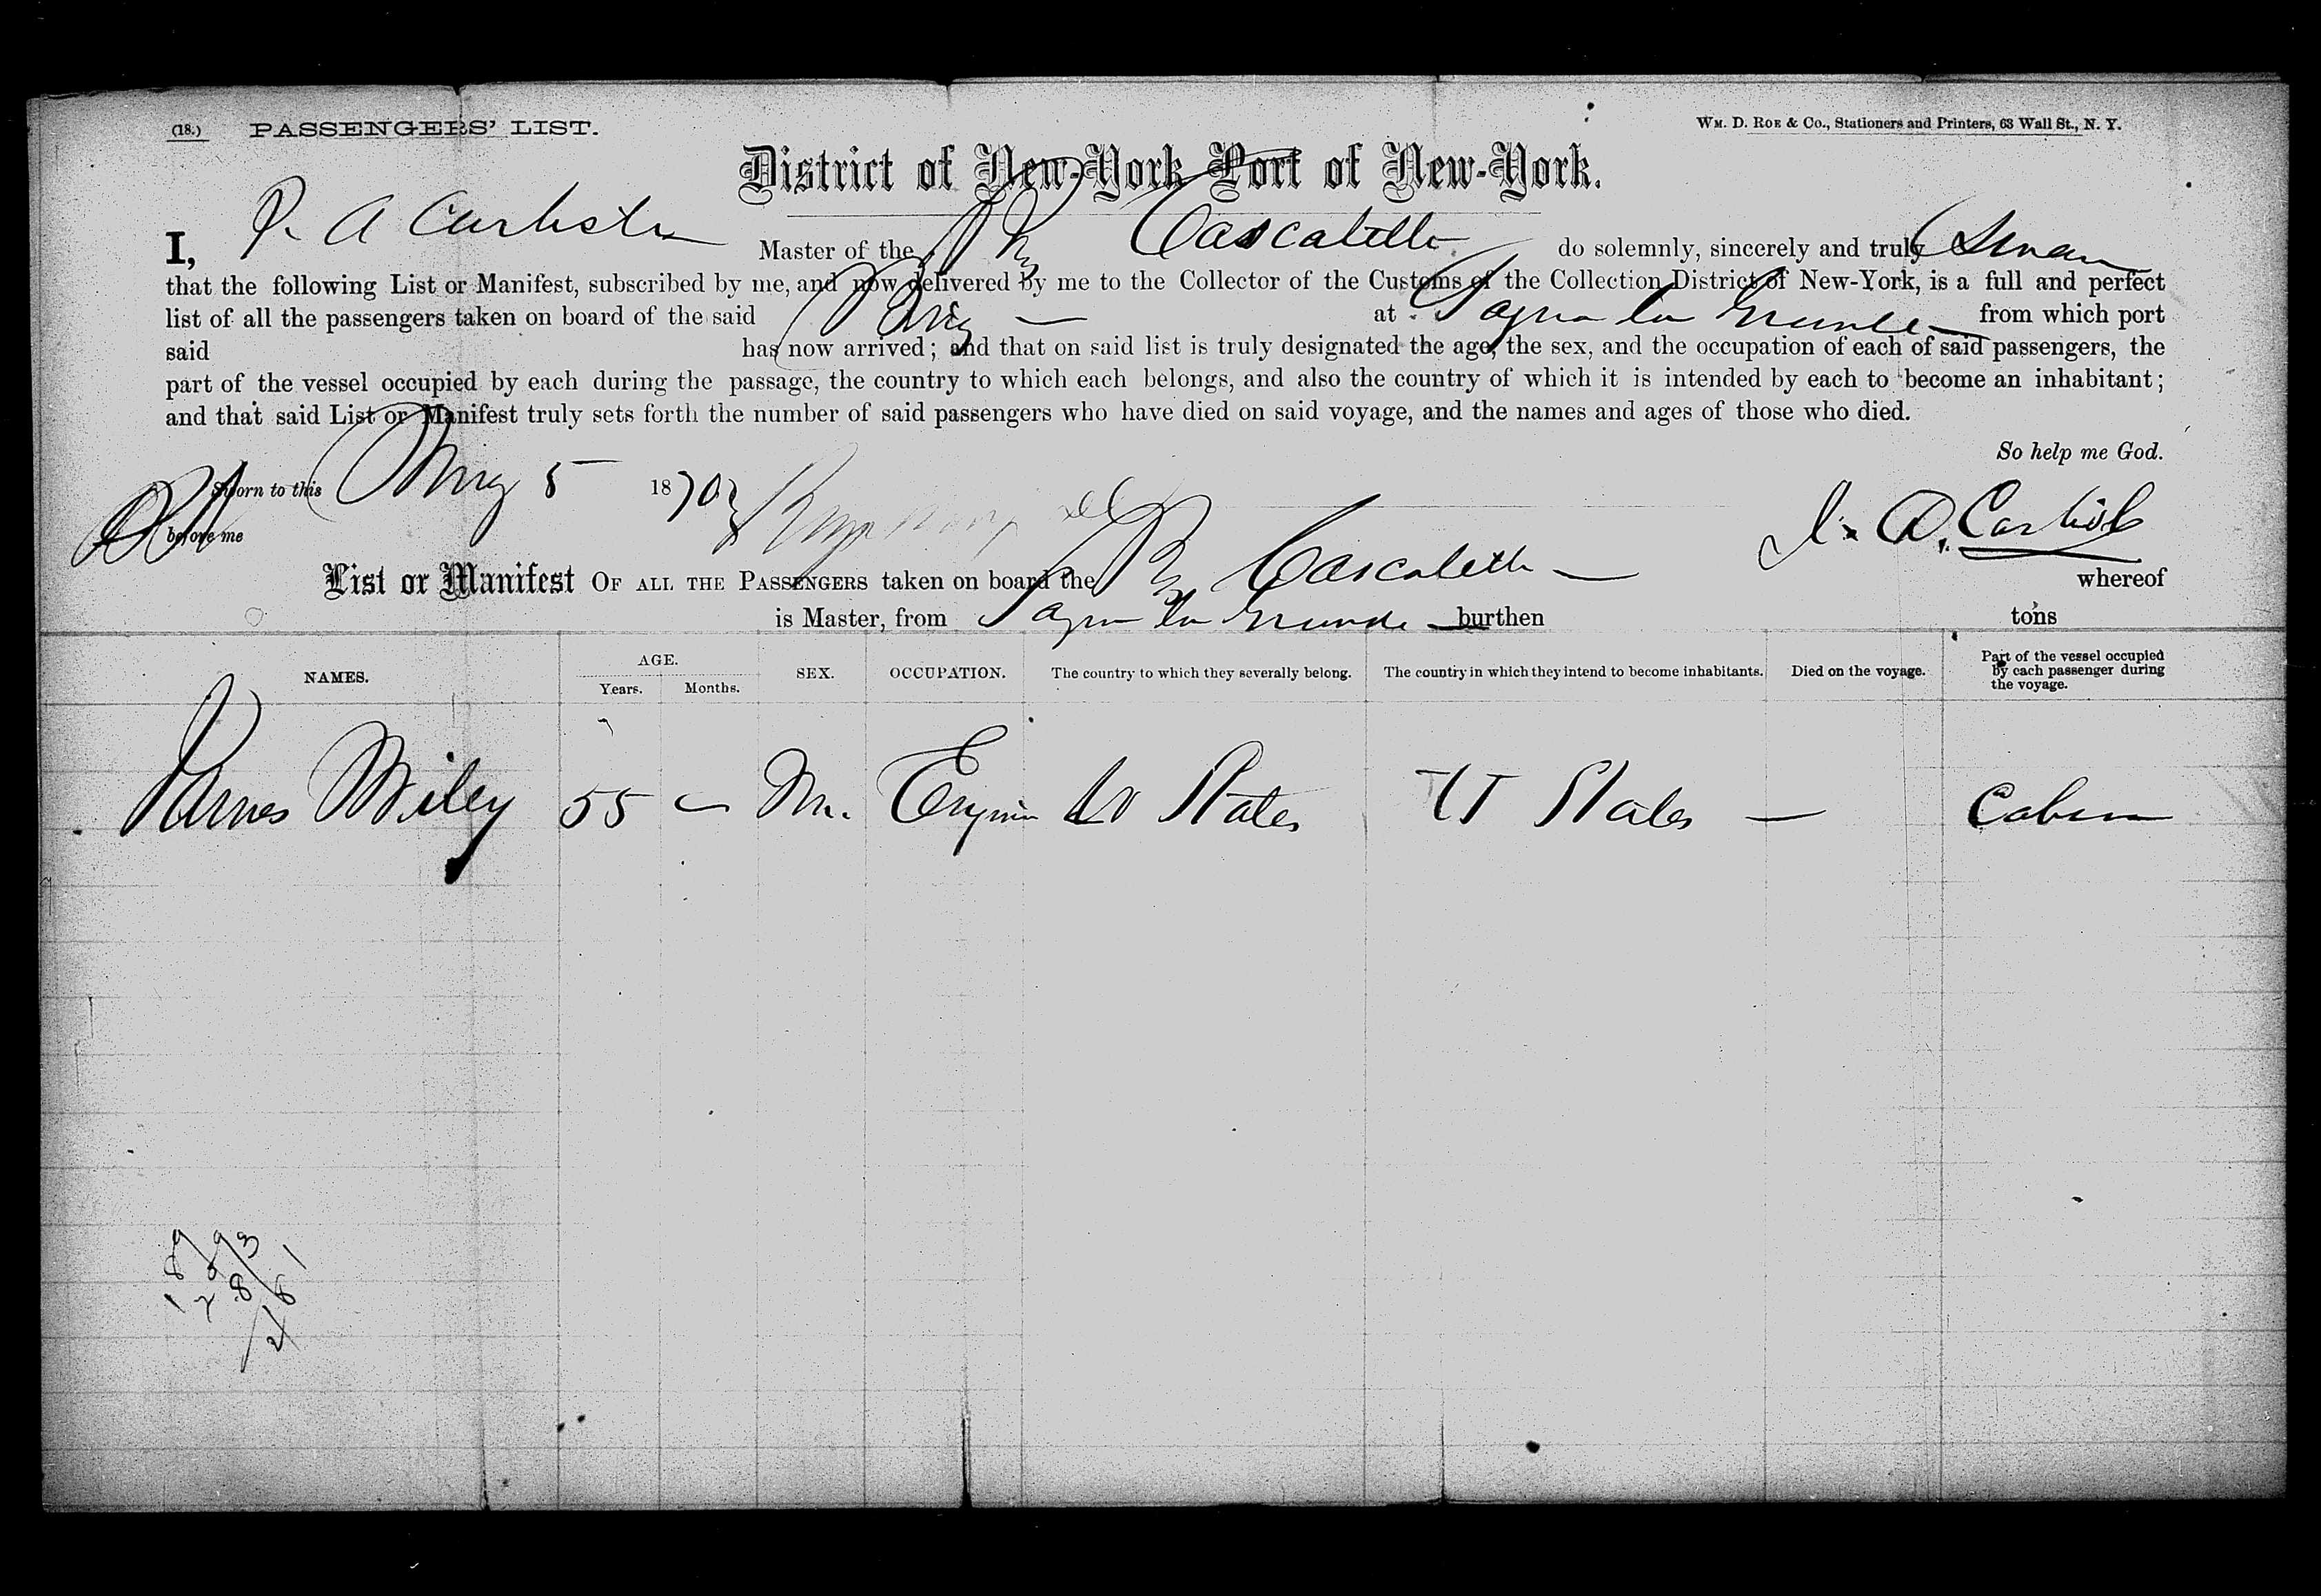 (18.) PASSENGERS' LIST.
WM. D. ROE & Co., Stationers and Printers, 63 Wall St., N. Y.
District of New-York Port of New-York.
I, J. A Carlisle Master of the Brig Cascatelle do solemnly, sincerely and truly Swear
that the following List or Manifest, subscribed by me, and now delivered by me to the Collector of the Customs of the Collection District of New-York, is a full and perfect
list of all the passengers taken on board of the said Brig — at Sagua la Grande — from which port
said has now arrived; and that on said list is truly designated the age, the sex, and the occupation of each of said passengers, the
part of the vessel occupied by each during the passage, the country to which each belongs, and also the country of which it is intended by each to become an inhabitant;
and that said List or Manifest truly sets forth the number of said passengers who have died on said voyage, and the names and ages of those who died.
So help me God.
Sworn to this May 5 1870
before me
J. A. Carlisle
List or Manifest OF ALL THE PASSENGERS taken on board the Brig Cascatelle — whereof
is Master, from Sagua la Grande — burthen tons
NAMES. AGE. Years. Months. SEX. OCCUPATION. The country to which they severally belong. The country in which they intend to become inhabitants. Died on the voyage. Part of the vessel occupied by each passenger during the voyage.
James Wiley 55 — M. Engineer U States U States — Cabin